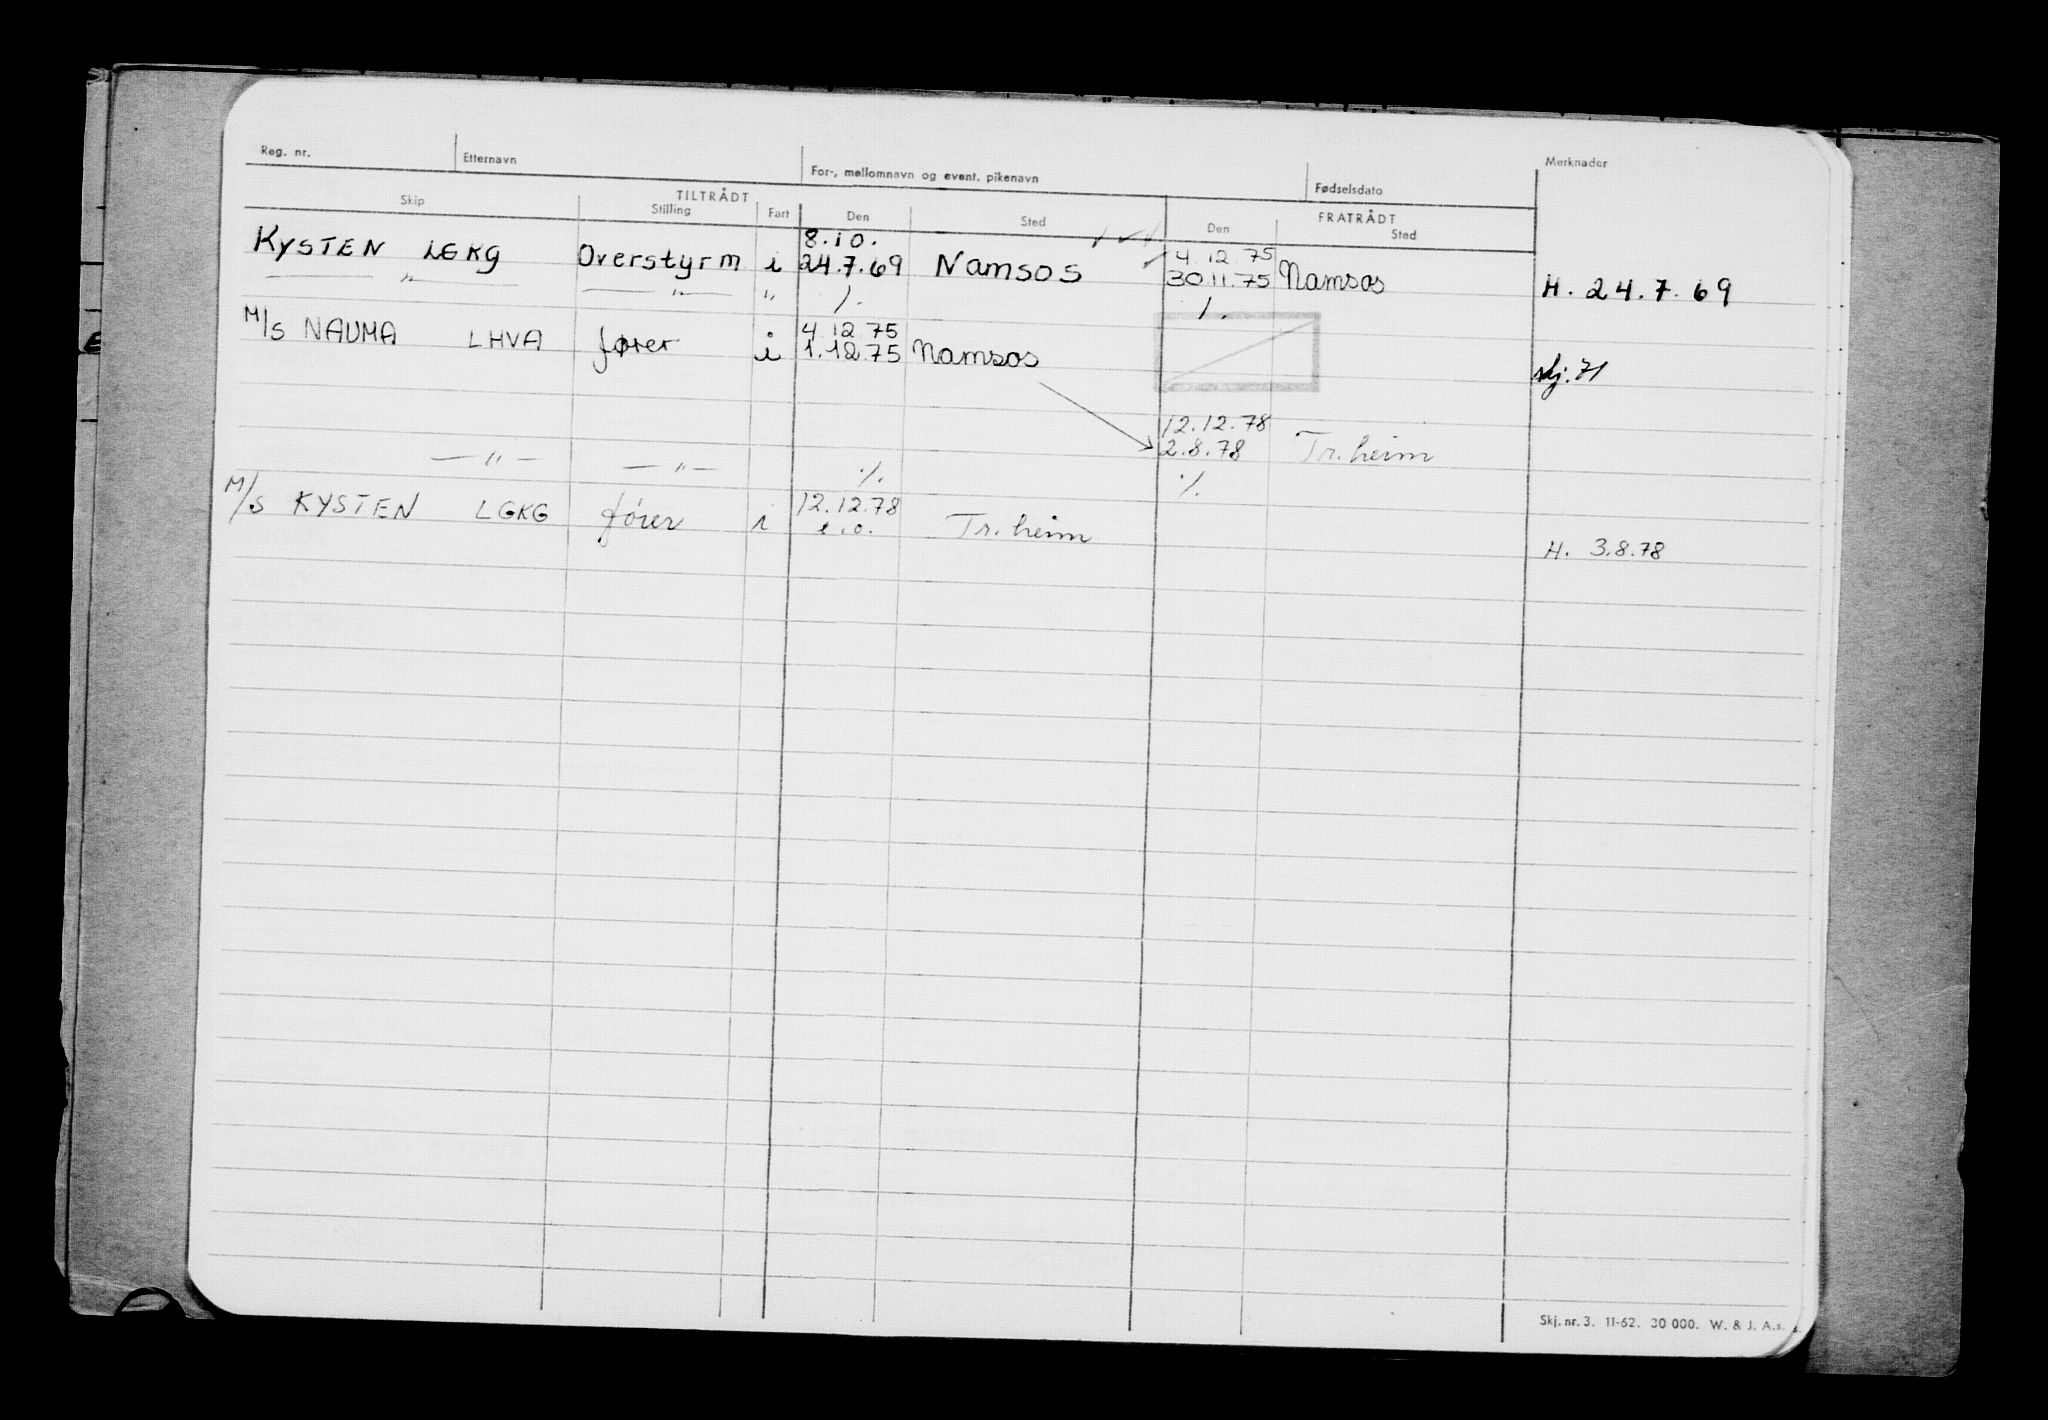 Reg. nr. Etternavn For-, mellomnavn og event. pikenavn Fødselsdato Merknader
TILTRÅDT FRATRÅDT
Skip Stilling Fart Den Sted Den Sted
8.10. 4.12.75
KYSTEN LGKG Overstyrm i 24.7.69 Namsos 30.11.75 Namsos H. 24.7.69
— " — — " — " /. /.
4.12.75
M/S NAUMA LHVA fører i 1.12.75 Namsos skj. 71
12.12.78
2.8.78 Tr.heim
— " — — " — ·/. ·/.
12.12.78
M/S KYSTEN LGKG fører i Tr.heim
H. 3.8.78
Skj. nr. 3. 11-62. 30 000. W. & J. A.s.